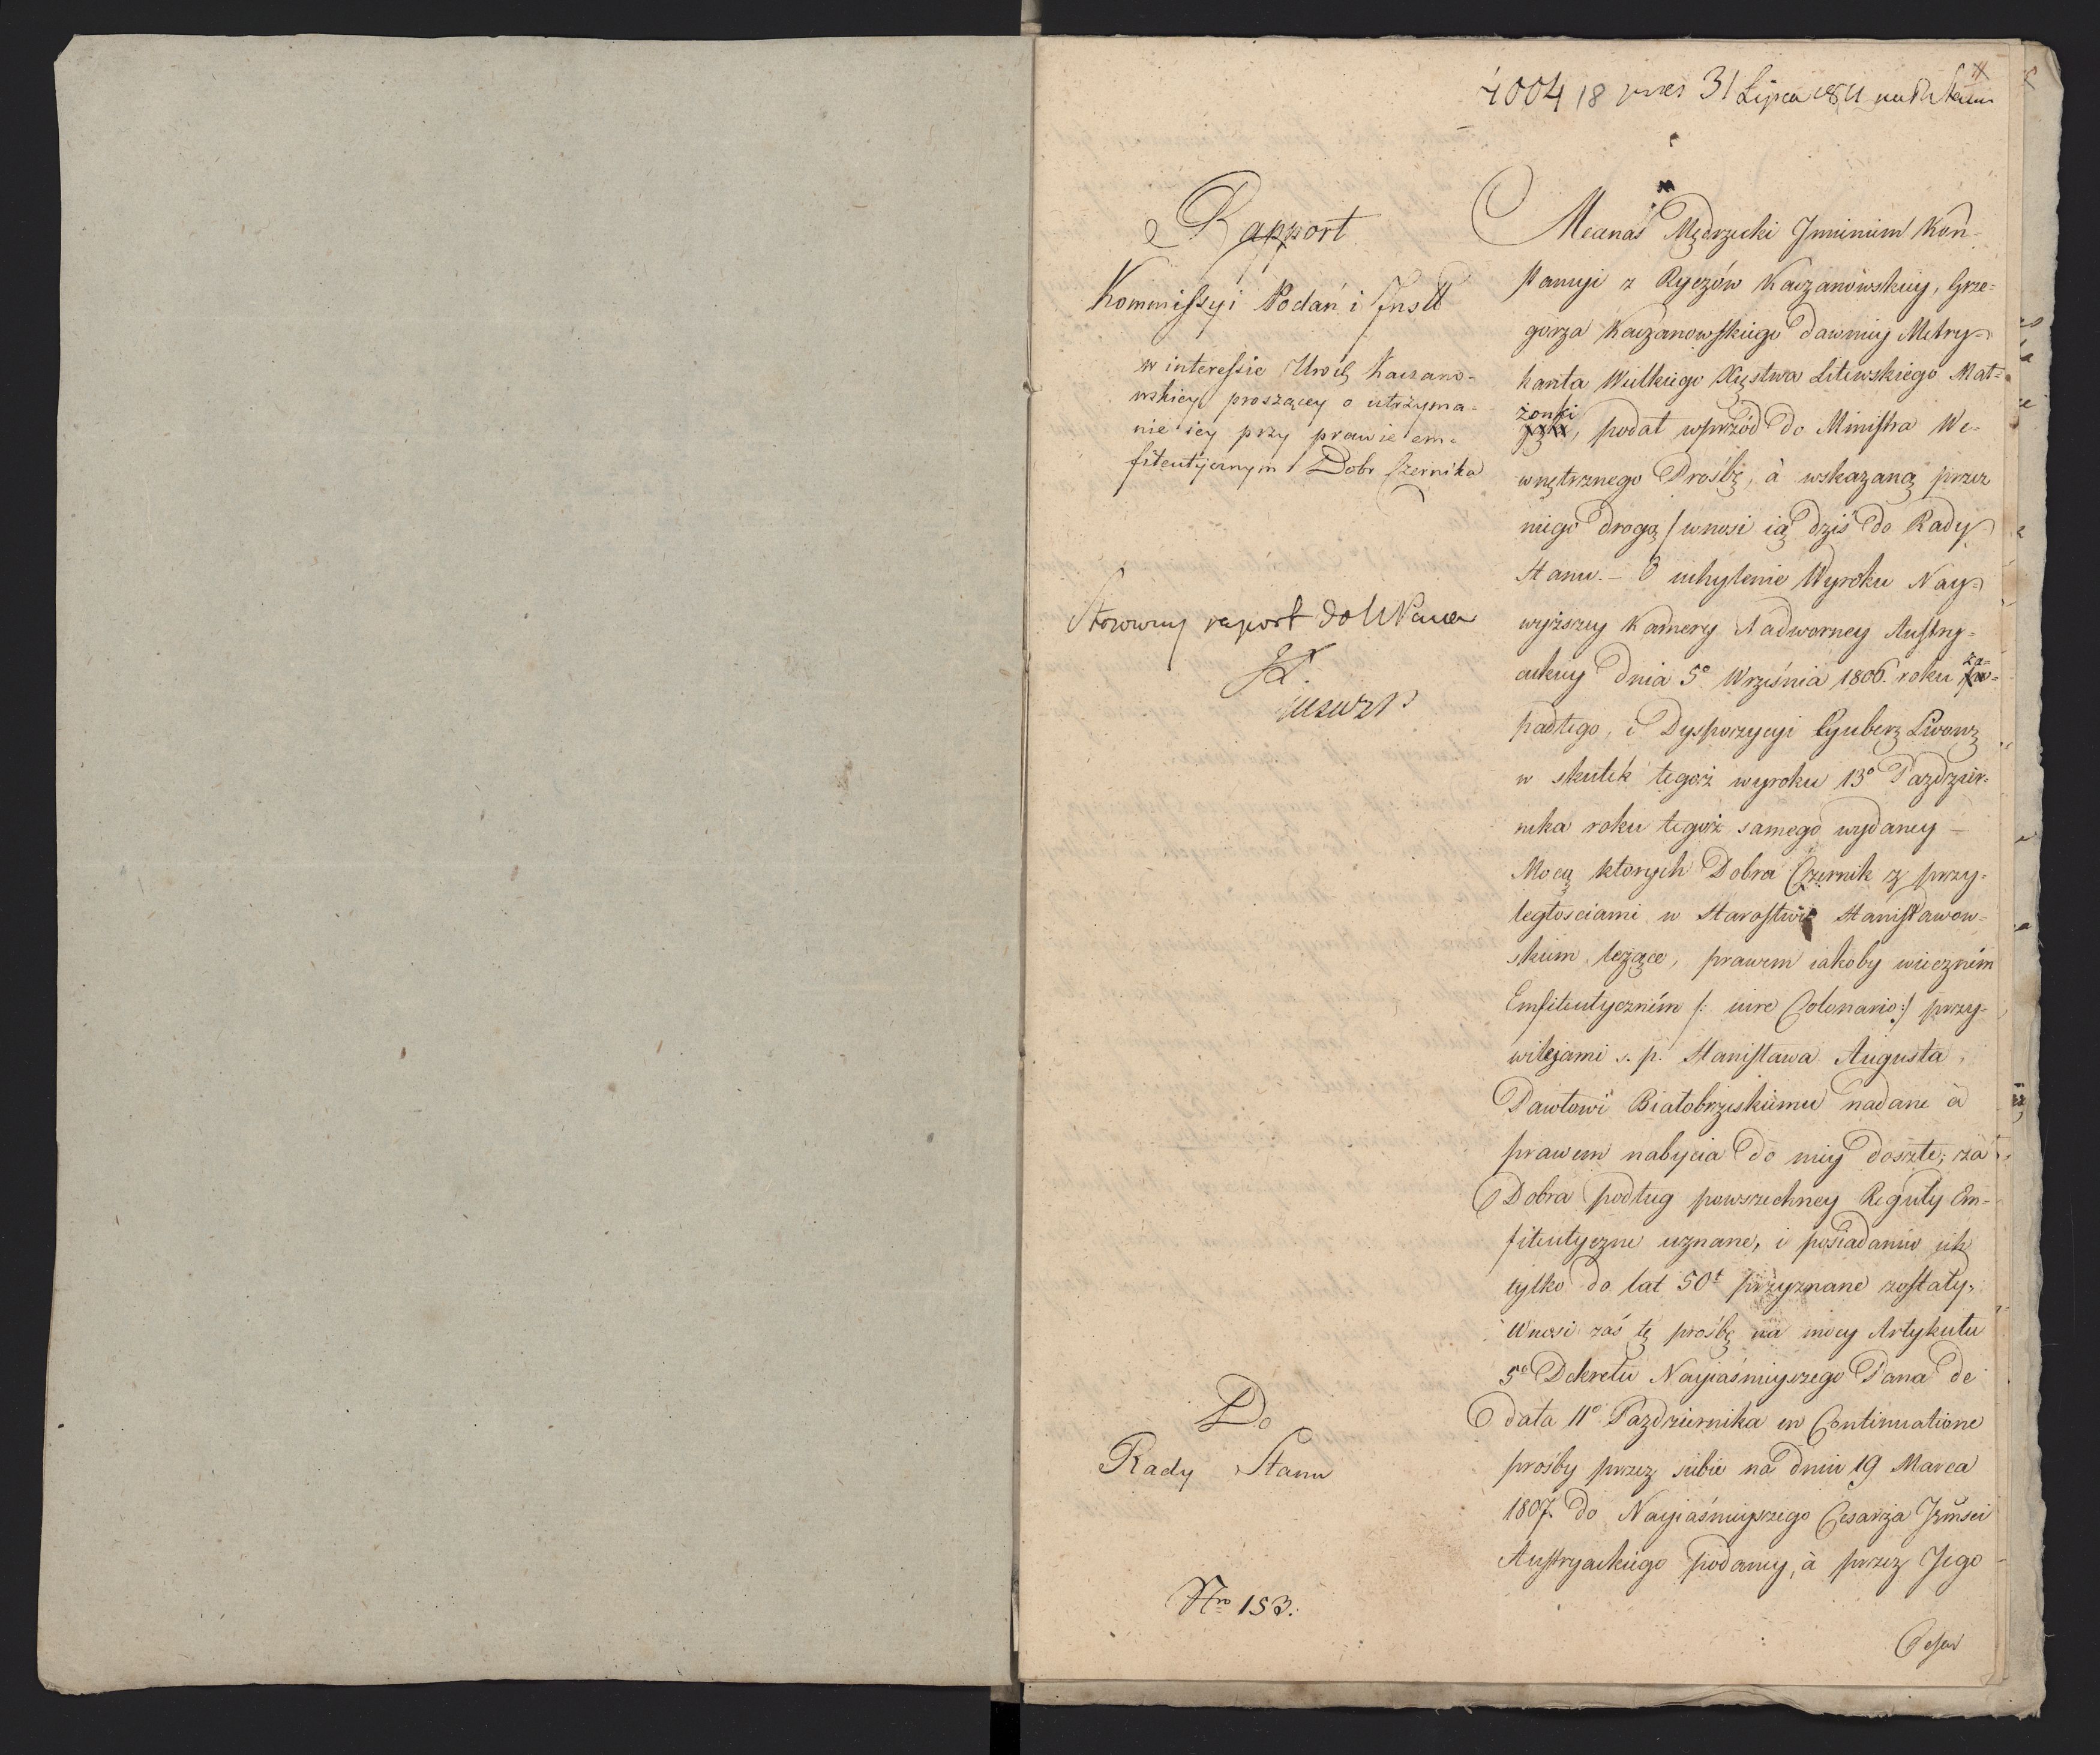 4004 18 31 Lipca
Rapport
Kommissyi Podań i Inst
w interessie Urod Kaczano-
wskiey proszącey o utrzyma-
nie iey przy prawie em-
fiteutycznym Dobr Czernika
raport do
Do
Rady Stanu
Nro 153.
Mecenas Mędrzecki Jmieniem Kon-
stancyi z Ryczów Kaczanowskiey, Grze-
gorza Kaczanowskiego dawniey Metry-
kanta Wielkiego Xięstwa Litewskiego Mał-
żonki, podał wprzód do Ministra We-
wnętrznego Prośbę, à wskazaną przez
niego drogą wnosi ią dziś do Rady
Stanu. – O uchylenie Wyroku Nay-
wyższey Kamery Nadworney Austry-
ackiey dnia 5o Września 1806. roku za-
padłego, i Dyspozycyi Gubern Lwows
w skutek tegoż wyroku 13o Pazdzier-
nika roku tegoż samego wydaney –
Mocą ktorych Dobra Czernik z przy-
ległosciami w Starostwie Stanisławow-
skim leżące, prawem iakoby wieczném
Emfiteutyczném /: iure Colonario :/ przy-
wilejami s. p. Stanisława Augusta,
Pawłowi Białobrzeskiemu nadane à
prawem nabycia do niey doszłe; za
Dobra podług powszechney Reguły Em-
fiteutyczne uznane, i posiadanie ich
tylko do lat 50t przyznane zostały.
Wnosi zaś tę prośbę na mocy Artykułu
5o Dekretu Nayiaśnieyszego Pana de
data 11o Pazdziernika in Continuatione
prośby przez siebie na dniu 19 Marca
1807. do Nayiaśnieyszego Cesarza Jmsci
Austryackiego podaney, à przez Jego
Cesar